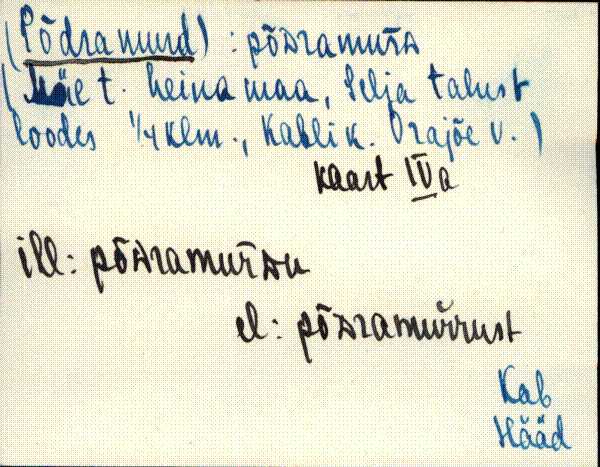 (Põdramurd) : põᴅramuᴛᴅ
(Mäe t. heinamaa, Selja talust
loodes 1/4 klm., Kabli k. Orajõe v.)
kaart IVa
ill: põᴅramuᴛᴅu
el: põᴅramuŕrust
Kab
Hääd